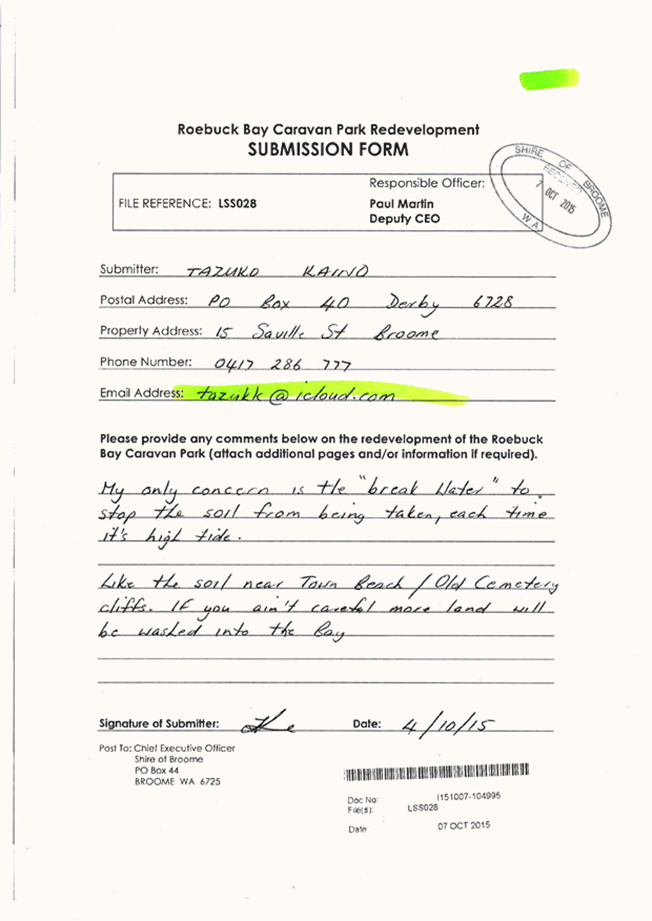 Roebuck Bay Caravan Park Redevelopment
SUBMISSION FORM
SHIRE OF BROOME
RECEIVED
7 OCT 2015
W.A.
FILE REFERENCE: LSS028
Responsible Officer:
Paul Martin
Deputy CEO
Submitter: TAZUKO KAINO
Postal Address: PO Box 40 Derby 6728
Property Address: 15 Saville St Broome
Phone Number: 0417 286 777
Email Address: tazukk@icloud.com
Please provide any comments below on the redevelopment of the Roebuck
Bay Caravan Park (attach additional pages and/or information if required).
My only concern is the "break Water" to
stop the soil from being taken, each time
it's high tide.
Like the soil near Town Beach / Old Cemetery
cliffs. If you ain't careful more land will
be washed into the Bay
Signature of Submitter: Date: 4/10/15
Post To: Chief Executive Officer
Shire of Broome
PO Box 44
BROOME WA 6725
Doc No: I151007-104995
File(s): LSS028
Date: 07 OCT 2015